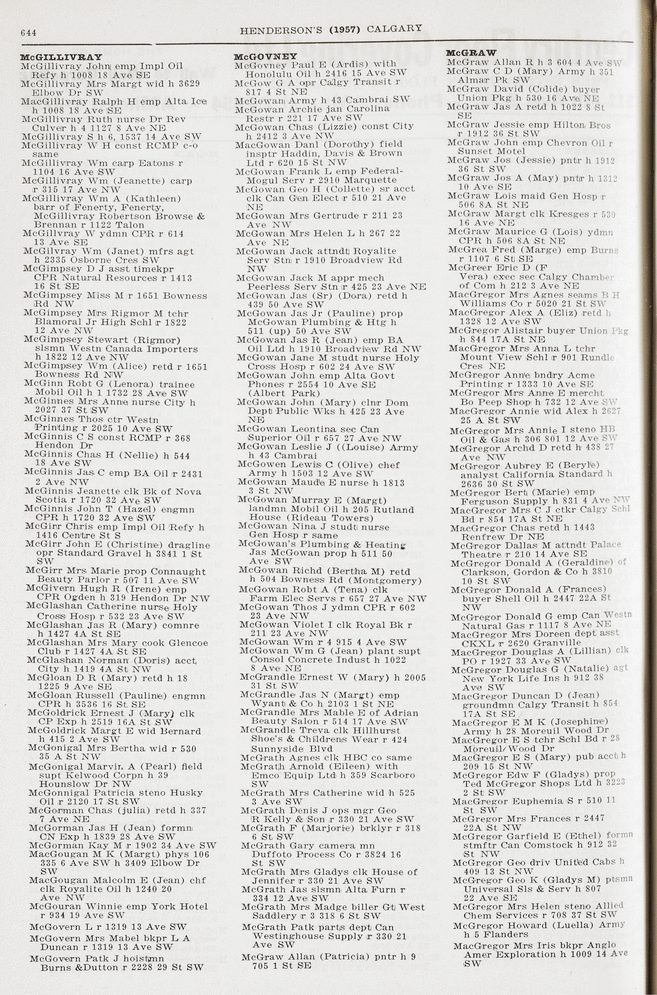 644
HENDERSON'S (1957) CALGARY
McGILLIVRAY
McGillivray John emp Impl Oil
Refy h 1008 18 Ave SE
McGillivray Mrs Margt wid h 3629
Elbow Dr SW
MacGillivray Ralph H emp Alta Ice
h 1008 18 Ave SE
McGillivray Ruth nurse Dr Rev
Culver h 4 1127 8 Ave NE
McGillivray S h 6, 1537 14 Ave SW
McGillivray W H const RCMP c-o
same
McGillivray Wm carp Eatons r
1104 16 Ave SW
McGillivray Wm (Jeanette) carp
r 315 17 Ave NW
McGillivray Wm A (Kathleen)
barr of Fenerty, Fenerty,
McGillivray Robertson Browse &
Brennan r 1122 Talon
McGillivray W ydmn CPR r 614
13 Ave SE
McGilvray Wm (Janet) mfrs agt
h 2335 Osborne Cres SW
McGimpsey D J asst timekpr
CPR Natural Resources r 1413
16 St SE
McGimpsey Miss M r 1651 Bowness
Rd NW
McGimpsey Mrs Rigmor M tchr
Blamoral Jr High Schl r 1822
12 Ave NW
McGimpsey Stewart (Rigmor)
slsmn Westn Canada Importers
h 1822 12 Ave NW
McGimpsey Wm (Alice) retd r 1651
Bowness Rd NW
McGinn Robt G (Lenora) trainee
Mobil Oil h 1 1732 28 Ave SW
McGinnes Mrs Anne nurse City h
2027 37 St SW
McGinnes Thos ctr Westn
Printing r 2025 10 Ave SW
McGinnis C S const RCMP r 368
Hendon Dr
McGinnis Chas H (Nellie) h 544
18 Ave SW
McGinnis Jas C emp BA Oil r 2431
2 Ave NW
McGinnis Jeanette clk Bk of Nova
Scotia r 1720 32 Ave SW
McGinnis John T (Hazel) engmn
CPR h 1720 32 Ave SW
McGirr Chris emp Impl Oil Refy h
1416 Centre St S
McGirr John E (Christine) dragline
opr Standard Gravel h 3841 1 St
SW
McGirr Mrs Marie prop Connaught
Beauty Parlor r 507 11 Ave SW
McGivern Hugh R (Irene) emp
CPR Ogden h 319 Hendon Dr NW
McGlashan Catherine nurse Holy
Cross Hosp r 532 23 Ave SW
McGlashan Jas R (Mary) comnre
h 1427 4A St SE
McGlashan Mrs Mary cook Glencoe
Club r 1427 4A St SE
McGlashan Norman (Doris) acct
City h 1419 4A St NW
McGloan D R (Mary) retd h 18
1225 9 Ave SE
McGloan Russell (Pauline) engmn
CPR h 3536 16 St SE
McGoldrick Ernest J (Mary) clk
CP Exp h 2519 16A St SW
McGoldrick Margt E wid Bernard
h 415 2 Ave SW
McGonigal Mrs Bertha wid r 530
35 A St NW
McGonigal Marvin A (Pearl) field
supt Kelwood Corpn h 39
Hounslow Dr NW
McGonnigal Patricia steno Husky
Oil r 2120 17 St SW
McGorman Chas (julia) retd h 337
7 Ave NE
McGorman Jas H (Jean) formn
CN Exp h 1839 28 Ave SW
McGorman Kay M r 1902 34 Ave SW
MacGougan M K (Margt) phys 106
335 6 Ave SW h 3409 Elbow Dr
SW
MacGougan Malcolm E (Jean) chf
clk Royalite Oil h 1240 20
Ave NW
McGouran Winnie emp York Hotel
r 934 19 Ave SW
McGovern L r 1319 13 Ave SW
McGovern Mrs Mabel bkpr L A
Duncan r 1319 13 Ave SW
McGovern Patk J hoistmn
Burns &Dutton r 2228 29 St SW
McGOVNEY
McGovney Paul E (Ardis) with
Honolulu Oil h 2416 15 Ave SW
McGow G A opr Calgary Transit r
817 4 St NE
McGowan Army h 43 Cambrai SW
McGowan Archie jan Carolina
Restr r 221 17 Ave SW
McGowan Chas (Lizzie) const City
h 2412 3 Ave NW
MacGowan Danl (Dorothy) field
insptr Haddin, Davis & Brown
Ltd r 620 15 St NW
McGowan Frank L emp Federal-
Mogul Serv r 2910 Marquette
McGowan Geo H (Collette) sr acct
clk Can Gen Elect r 510 21 Ave
NE
McGowan Mrs Gertrude r 211 23
Ave NW
McGowan Mrs Helen L h 267 22
Ave NE
McGowan Jack attndt Royalite
Serv Stn r 1910 Broadview Rd
NW
McGowan Jack M appr mech
Peerless Serv Stn r 425 23 Ave NE
McGowan Jas (Sr) (Dora) retd h
439 50 Ave SW
McGowan Jas Jr (Pauline) prop
McGowan Plumbing & Htg h
511 (up) 50 Ave SW
McGowan Jas R (Jean) emp BA
Oil Ltd h 1910 Broadview Rd NW
McGowan Jane M studt nurse Holy
Cross Hosp r 602 24 Ave SW
McGowan John emp Alta Govt
Phones r 2554 10 Ave SE
(Albert Park)
McGowan John (Mary) clnr Dom
Dept Public Wks h 425 23 Ave
NE
McGowan Leontina sec Can
Superior Oil r 657 27 Ave NW
McGowan Leslie J ((Louise) Army
h 43 Cambrai
McGowen Lewis C (Olive) chef
Army h 1503 12 Ave SW
McGowan Maude E nurse h 1813
3 St NW
McGowan Murray E (Margt)
landmn Mobil Oil h 205 Rutland
House (Rideau Towers)
McGowan Nina J studt nurse
Gen Hosp r same
McGowan's Plumbing & Heating
Jas McGowan prop h 511 50
Ave SW
McGowan Richd (Bertha M) retd
h 504 Bowness Rd (Montgomery)
McGowan Robt A (Tena) clk
Farm Elec Servs r 657 27 Ave NW
McGowan Thos J ydmn CPR r 602
23 Ave NW
McGowan Violet I clk Royal Bk r
211 23 Ave NW
McGowan Wm r 4 915 4 Ave SW
McGowan Wm G (Jean) plant supt
Consol Concrete Indust h 1022
8 Ave NE
McGrandle Ernest W (Mary) h 2005
31 St SW
McGrandle Jas N (Margt) emp
Wyant & Co h 2103 1 St NE
McGrandle Mrs Mable E of Adrian
Beauty Salon r 514 17 Ave SW
McGrandle Treva clk Hillhurst
Shoe's & Childrens Wear r 424
Sunnyside Blvd
McGrath Agnes clk HBC co same
McGrath Arnold (Eileen) with
Emco Equip Ltd h 359 Scarboro
SW
McGrath Mrs Catherine wid h 525
3 Ave SW
McGrath Denis J ops mgr Geo
R Kelly & Son r 330 21 Ave SW
McGrath F (Marjorie) brklyr r 318
6 St SW
McGrath Gary camera mn
Duffoto Process Co r 3824 16
St SW
McGrath Mrs Gladys clk House of
Jennifer r 330 21 Ave SW
McGrath Jas slsmn Alta Furn r
334 12 Ave SW
McGrath Mrs Madge biller Gt West
Saddlery r 3 318 6 St SW
McGrath Patk parts dept Can
Westinghouse Supply r 330 21
Ave SW
McGraw Allan (Patricia) pntr h 9
705 1 St SE
McGRAW
McGraw Allan R h 3 604 4 Ave SW
McGraw C D (Mary) Army h 351
Almar Pk SW
McGraw David (Colide) buyer
Union Pkg h 530 16 Ave NE
McGraw Jas A retd h 1022 8 St
SE
McGraw Jessie emp Hilton Bros
r 1912 36 St SW
McGraw John emp Chevron Oil r
Sunset Motel
McGraw Jos (Jessie) pntr h 1912
36 St SW
McGraw Jos A (May) pntr h 1312
10 Ave SE
McGraw Lois maid Gen Hosp r
506 8A St NE
McGraw Margt clk Kresges r 530
16 Ave NE
McGraw Maurice G (Lois) ydmn
CPR h 506 8A St NE
McGrea Fred (Marge) emp Burns
r 1107 6 St SE
McGreer Eric D (F
Vera) exec sec Calgary Chamber
of Com h 212 3 Ave NE
MacGregor Mrs Agnes seams B H
Williams Co r 5020 21 St SW
MacGregor Alex A (Eliz) retd h
1328 12 Ave SW
McGregor Alistair buyer Union Pkg
h 844 17A St NE
MacGregor Mrs Anna L tchr
Mount View Schl r 901 Rundle
Cres NE
McGregor Anne bndry Acme
Printing r 1333 10 Ave SE
McGregor Mrs Anne E mercht
Bo Peep Shop h 732 12 Ave SW
MacGregor Annie wid Alex h 2627
25 A St SW
McGregor Mrs Annie I steno HB
Oil & Gas h 306 801 12 Ave SW
McGregor Archd D retd h 438 27
Ave NW
McGregor Aubrey E (Beryle)
analyst California Standard h
2636 30 St SW
McGregor Bert (Marie) emp
Ferguson Supply h 831 4 Ave NW
MacGregor Mrs C J ctkr Calgy Schl
Bd r 854 17A St NE
McGregor Chas retd h 1443
Renfrew Dr NE
McGregor Dallas M attndt Palace
Theatre r 210 14 Ave SE
McGregor Donald A (Geraldine) of
Clarkson, Gordon & Co h 3810
10 St SW
McGregor Donald A (Frances)
buyer Shell Oil h 2447 22A St
NW
McGregor Donald G emp Can Westn
Natural Gas r 1117 8 Ave NE
McGregor Mrs Doreen dept asst
CKXL r 2620 Granville
McGregor Douglas A (Lillian) clk
PO r 1927 33 Ave SW
McGregor Douglas G (Natalie) agt
New York Life Ins h 912 38
Ave SW
MacGregor Duncan D (Jean)
groundmn Calgary Transit h 854
17A St SE
MacGregor E M K (Josephine)
Army h 28 Moreuil Wood Dr
MacGregor E S tchr Schl Bd r 28
Moreuil Wood Dr
MacGregor E S (Mary) pub acct h
209 15 St NW
McGregor Edw F (Gladys) prop
Ted McGregor Shops Ltd h 3223
2 St SW
MacGregor Euphemia S r 510 11
St SW
McGregor Mrs Frances r 2447
22A St NW
McGregor Garfield E (Ethel) formn
stmftr Can Comstock h 912 32
St NW
McGregor Geo driv United Cabs h
409 13 St NW
McGregor Geo K (Gladys M) ptsmn
Universal Sls & Serv h 807
22 Ave SE
McGregor Mrs Helen steno Allied
Chem Services r 708 37 St SW
McGregor Howard (Luella) Army
h 5 Flanders
MacGregor Mrs Iris bkpr Anglo
Amer Exploration h 1009 14 Ave
SW